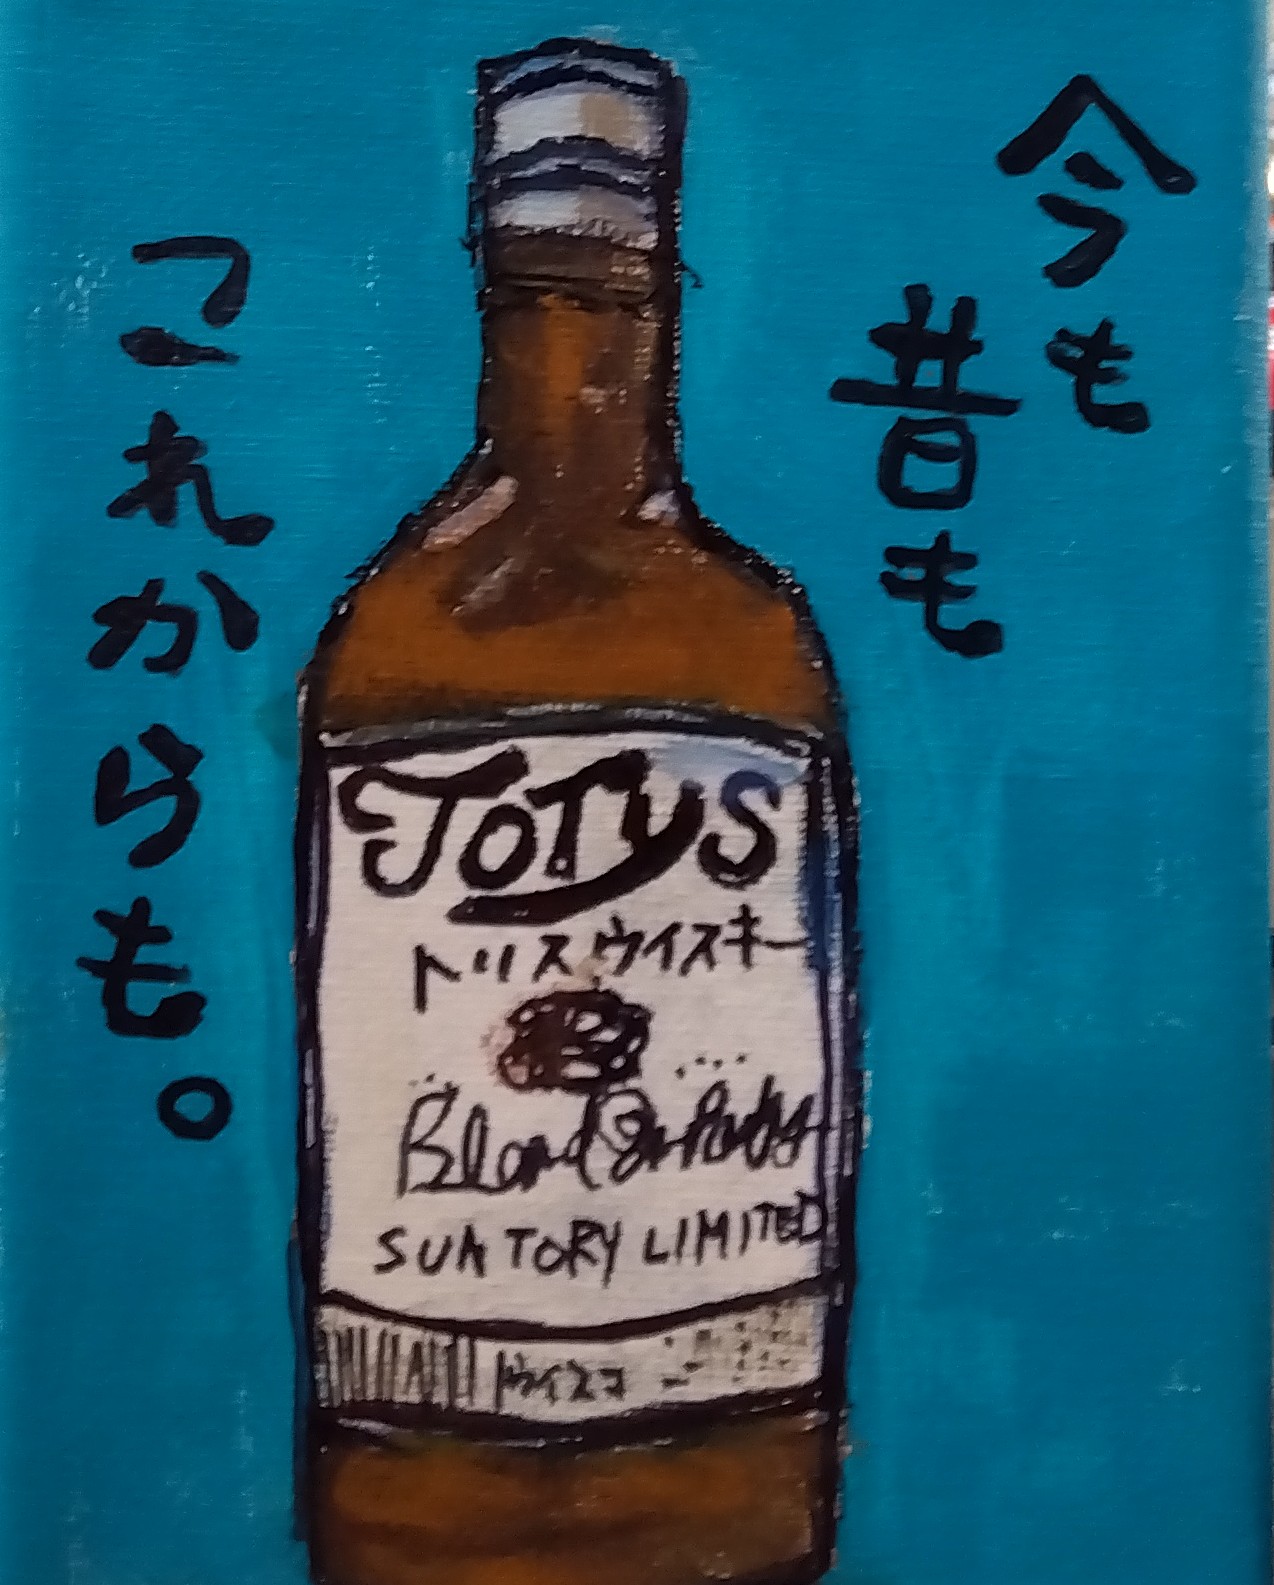 今も
昔も
これからも。
TOTYS
トリスウイスキー
Blend
SUNTORY LIMITED